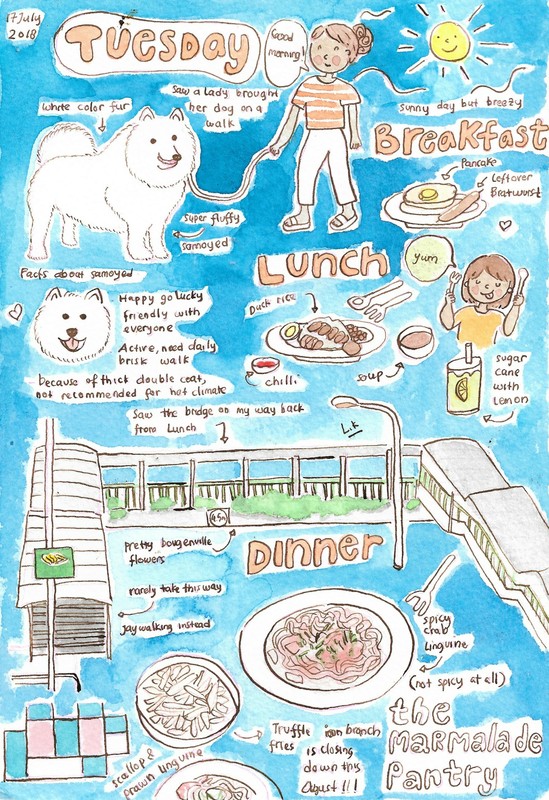 17 July
2018
TUESDAY
Good
morning!
Saw a lady brought
her dog on a
walk
sunny day but breezy
white color fur
super fluffy
samoyed
Breakfast
Pancake
Leftover
Bratwurst
Facts about samoyed
Happy go lucky
friendly with
everyone
Active, need daily
brisk walk
because of thick double coat,
not recommended for hot climate
LUNCH
yum
Duck rice
chilli
soup
sugar
cane
with
lemon
Saw the bridge on my way back
from Lunch
L.K
4.5m
pretty bougenville
flowers
rarely take this way
jaywalking instead
DINNER
spicy
crab
linguine
(not spicy at all)
Truffle
fries
scallop &
prawn linguine
ion branch
is closing
down this
August!!!
the
MARMALADE
Pantry